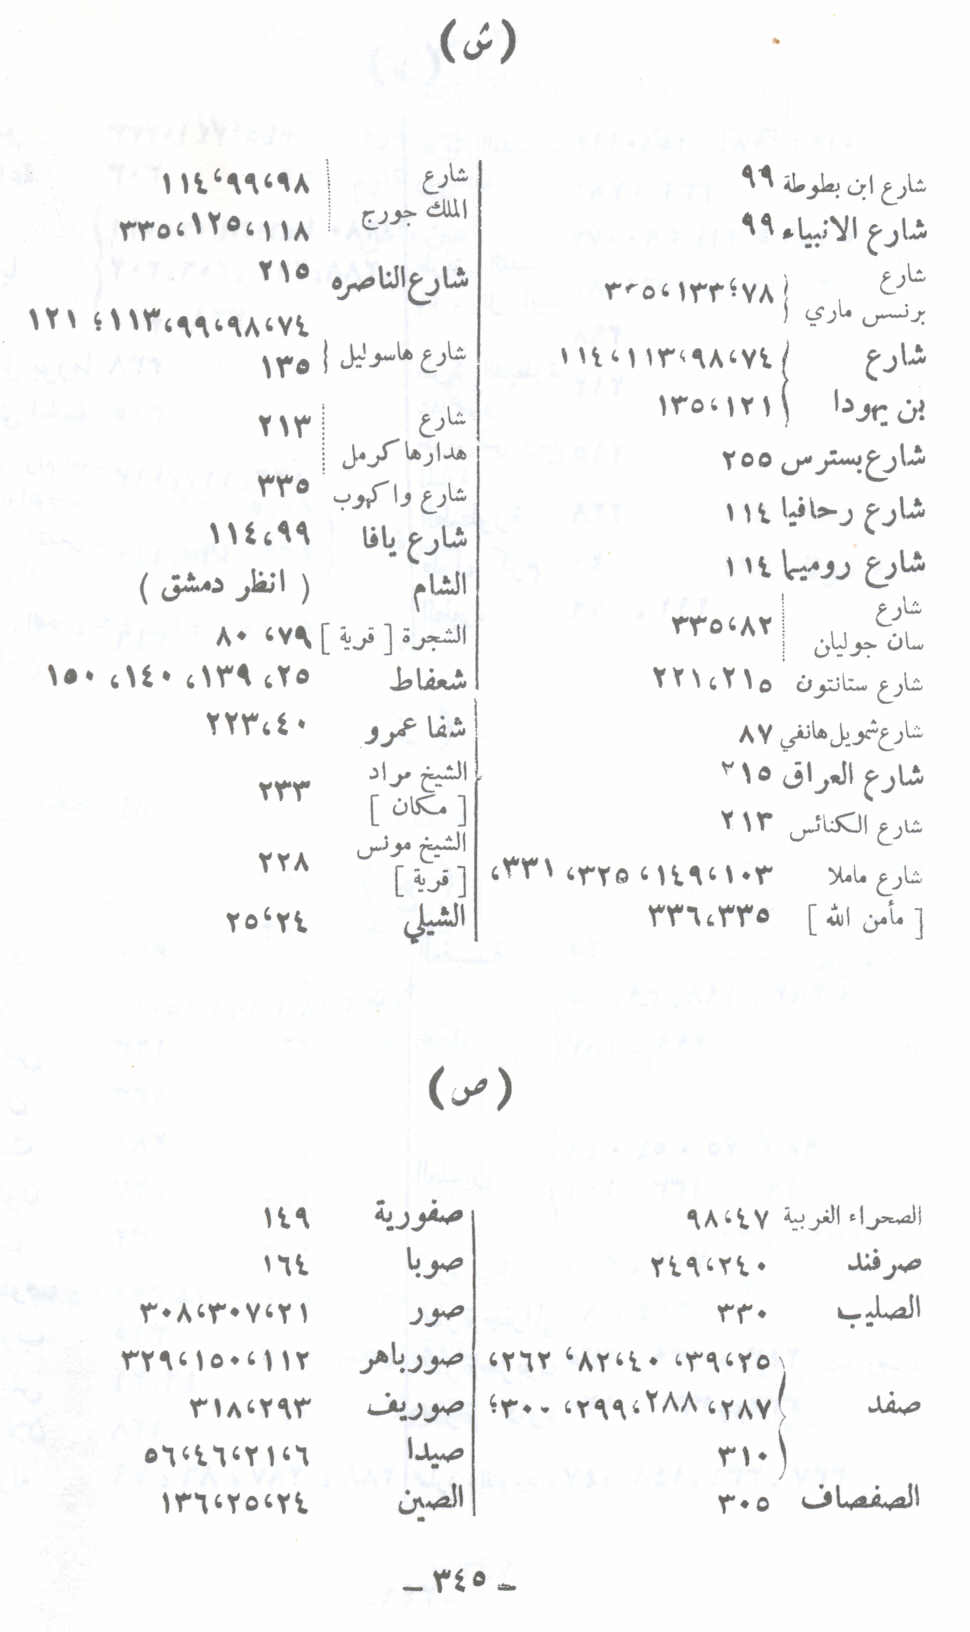 ( ش )
شارع ابن بطوطة ٩٩
شارع الانبياء ٩٩
شارع
برنسس ماري ٧٨؛ ١٣٣، ٣٣٥
شارع ٧٤، ٩٨، ١١٣، ١١٤
بن يهودا ١٢١، ١٣٥
شارع بسترس ٢٥٥
شارع رحافيا ١١٤
شارع روميما ١١٤
شارع
سان جوليان ٨٢، ٣٣٥
شارع ستانتون ٢١٥، ٢٢١
شارع شمويل هانفي ٨٧
شارع العراق ٢١٥
شارع الكنائس ٢١٣
شارع ماملا ١٠٣، ١٤٩، ٣٢٥، ٣٣١،
[ مأمن الله ] ٣٣٥، ٣٣٦
شارع ٩٨، ٩٩، ١١٤
الملك جورج ١١٨، ١٢٥، ٣٣٥
شارع الناصره ٢١٥
٧٤، ٩٨، ٩٩، ١١٣؛ ١٢١
شارع هاسوليل ١٣٥
شارع ٢١٣
هدارها كرمل
شارع واكهوب ٣٣٥
شارع يافا ٩٩، ١١٤
الشام ( انظر دمشق )
الشجرة [ قرية ] ٧٩، ٨٠
شعفاط ٢٥، ١٣٩، ١٤٠، ١٥٠
شفا عمرو ٤٠، ٢٢٣
الشيخ مراد
[ مكان ] ٢٣٣
الشيخ مونس
[ قرية ] ٢٢٨
الشيلي ٢٤، ٢٥
( ص )
الصحراء الغربية ٤٧، ٩٨
صرفند ٢٤٠، ٢٤٩
الصليب ٣٣٠
٢٥، ٣٩، ٤٠، ٨٢، ٢٦٢،
صفد ٢٨٧، ٢٨٨، ٢٩٩، ٣٠٠؛
٣١٠
الصفصاف ٣٠٥
صفورية ١٤٩
صوبا ١٦٤
صور ٢١، ٣٠٧، ٣٠٨
صورباهر ١١٢، ١٥٠، ٣٢٩
صوريف ٢٩٣، ٣١٨
صيدا ٦، ٢١، ٤٦، ٥٦
الصين ٢٤، ٢٥، ١٣٦
ـ ٣٤٥ ـ